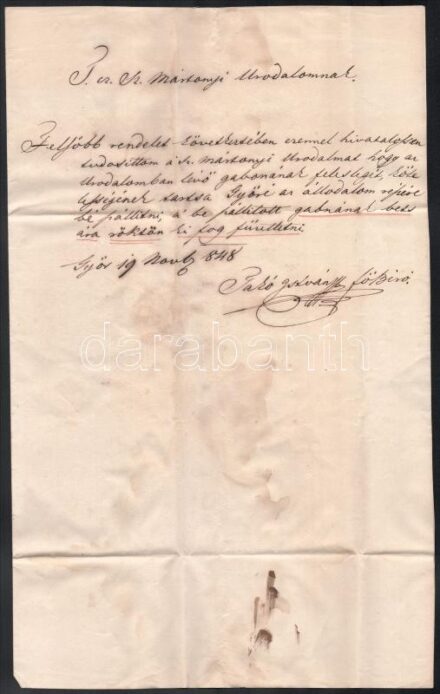 T. cz. Sz. Mártonyi Urodalomnak.
Felsőbb rendelet következtében ezennel hivatalossan
tudosittom a Sz. Mártonyi Urodalmat hogy az
Urodalomban lévő gabonának feleslegit, köte
lességének tartsa Győré az állodalom részire
bé szálletni, a bé szállétott gabnának bets
ára röktön ki fog fizettetni
Győr 19 Novb 848
István főbiró.
darabanth